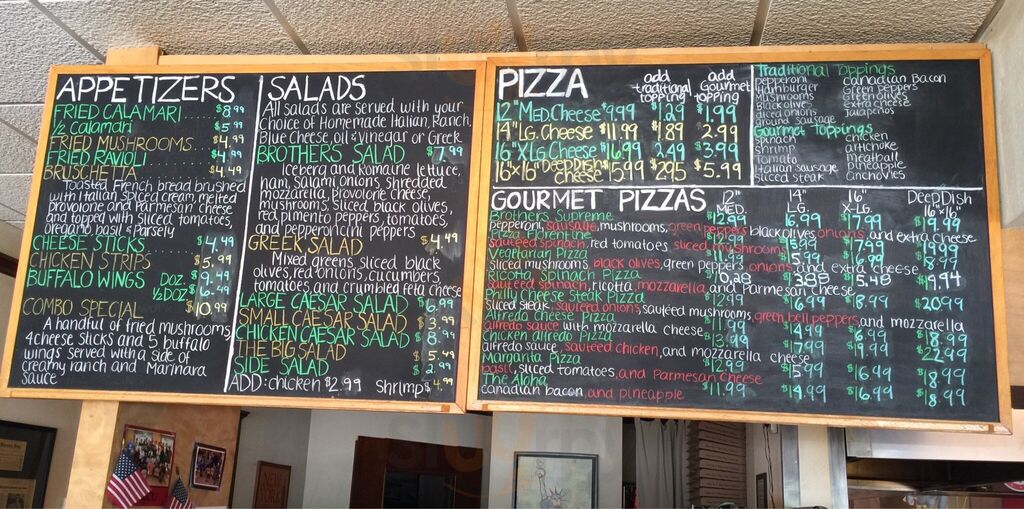 APPETIZERS
FRIED CALAMARI ..... $8.99
1/2 Calamari $5.99
FRIED MUSHROOMS... $4.99
FRIED RAVIOLI $4.99
BRUSCHETTA $4.49
Toasted French bread brushed
with Italian Spiced cream, melted
provolone and Parmesan cheese
and topped with sliced tomatoes,
oregano basil & Parsely
CHEESE STICKS $4.49
CHICKEN STRIPS $5.99
BUFFALO WINGS Doz. $9.49
1/2 Doz $6.49
COMBO SPECIAL $10.99
A handful of fried mushrooms,
4 cheese sticks and 5 buffalo
wings served with a side of
creamy ranch and Marinara
sauce
SALADS
All salads are served with your
choice of Homemade Italian, Ranch,
Blue Cheese, oil & vinegar or Greek.
BROTHERS SALAD $7.99
Iceberg and Romaine lettuce,
ham, salami onions, shredded
mozzarella, provolone cheese,
mushrooms, sliced black olives,
red pimento peppers, tomatoes,
and pepperoncini peppers
GREEK SALAD $4.49
Mixed greens, sliced black
olives, red onions, cucumbers,
tomatoes, and crumbled feta cheese
LARGE CAESAR SALAD $6.99
SMALL CAESAR SALAD $3.99
CHICKEN CAESAR SALAD $8.99
THE BIG SALAD $5.49
SIDE SALAD $2.99
ADD: chicken $2.99 Shrimp $4.99
PIZZA add traditional topping add Gourmet topping
12" Med Cheese $9.99 1.29 1.99
14" Lg. Cheese $11.99 $1.89 2.99
16" X Lg Cheese $16.99 2.49 $3.99
16"x16" Deep Dish Cheese $15.99 $2.95 $5.99
Traditional Toppings
pepperoni Canadian Bacon
hamburger Green peppers
Mushrooms Green olives
Black olives extra cheese
diced onions Jalapenos
ground sausage
Gourmet Toppings
spinach chicken
shrimp artichoke
Tomato meatball
Italian sausage pineapple
Sliced steak anchovies
GOURMET PIZZAS 12" MED. 14" LG. 16" X-LG. DeepDish 16"x16"
Brothers Supreme $12.99 16.99 $17.99 $19.99
pepperoni, sausage, mushrooms, green peppers, black olives, onions, and extra cheese
Pizza Florentine
sauteed spinach, red tomatoes, sliced mushrooms
Vegetarian Pizza
sliced mushrooms, black olives, green peppers, onions, and extra cheese
Ricotta Spinach Pizza
sauteed spinach, ricotta, mozzarella, and Parmesan cheese
Philly Cheese Steak Pizza $12.99 $16.99 $18.99 $20.99
Sliced steak, sauteed onions, sauteed mushrooms, green bell peppers, and mozzarella
Alfredo Cheese Pizza
alfredo sauce with mozzarella cheese
Chicken alfredo Pizza
alfredo sauce, sauteed chicken, and mozzarella cheese
Margarita Pizza $12.99 $15.99 $16.99 $18.99
basil, sliced tomatoes, and Parmesan Cheese
The Aloha $11.99 $14.99 $16.99 $18.99
Canadian bacon, and pineapple